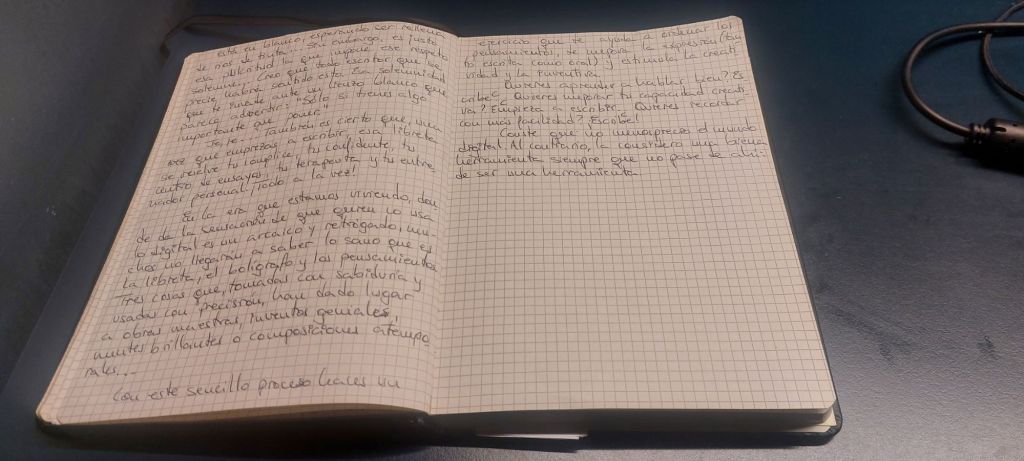 está en blanco esperando ser rellena
de nos de tinta... Sin embargo, es justo
esa plenitud la que impone ese respeto
solemne. Creo que todo escritor que se
precie habrá sentido esta. Esa solemnidad
que te invade ante un lienzo blanco que
parece advertir: "Sólo si tienes algo
importante que poner.
También es cierto que, una
vez que empiezas a escribir, esa libreta
se vuelve tu cómplice, tu confidente, tu
centro de ensayos, tu terapeuta y tu entre
nador personal. ¡Todo a la vez!
En la era que estamos viviendo, don
de da la sensación de que quien no usa
lo digital es un arcaico y retrógado, mu
chos no llegarán a saber lo sano que es
la libreta, el bolígrafo y los pensamientos
Tres cosas que, tomadas con sabiduría y
usadas con precisión, han dado lugar
a obras maestras, inventos geniales,
mentes brillantes o composiciones atempo
rales...
Con este sencillo proceso haces un
ejercicio que te ayuda a ordenar los
pensamientos, se mejora la expresión (tan
to escrita como oral) y estimula la creati
vidad y la inventiva.
¿Quieres aprender a hablar bien? Es
cribe. ¿Quieres mejorar tu capacidad creati
va? Empieza a escribir. ¿Quieres recordar
con más facilidad? ¡Escribe!
Conste que no menosprecio el mundo
digital. Al contrario, la considero una buena
herramienta siempre que no pase de ahí:
de ser una herramienta